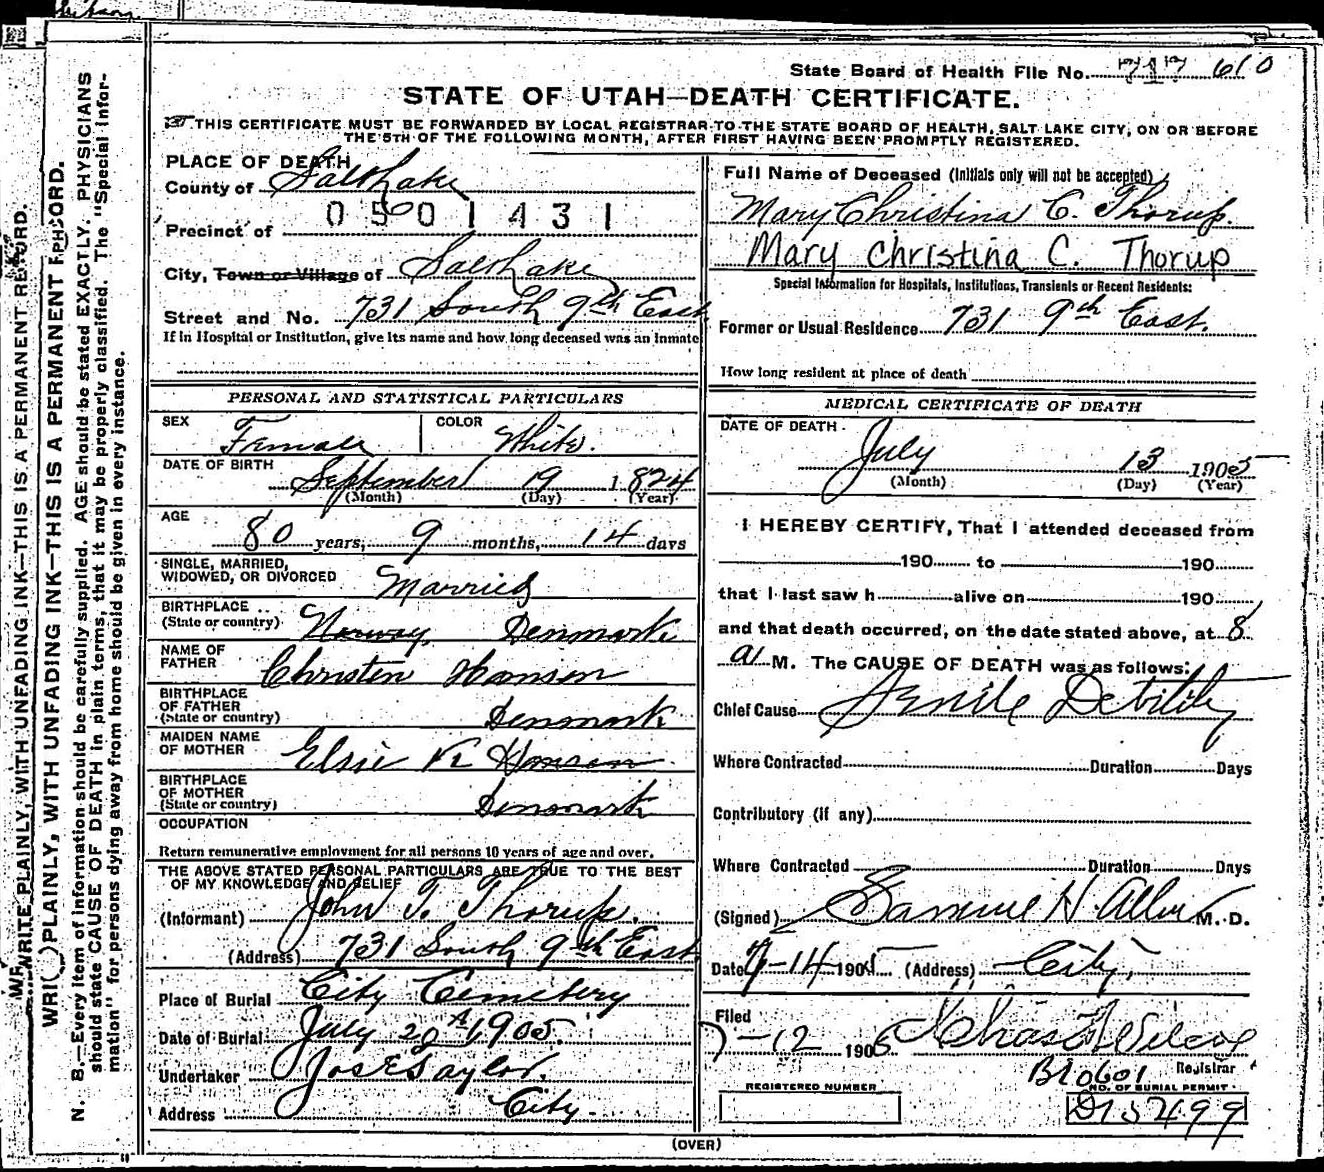 State Board of Health File No. 717 610
STATE OF UTAH—DEATH CERTIFICATE.
THIS CERTIFICATE MUST BE FORWARDED BY LOCAL REGISTRAR TO THE STATE BOARD OF HEALTH, SALT LAKE CITY, ON OR BEFORE
THE 5TH OF THE FOLLOWING MONTH, AFTER FIRST HAVING BEEN PROMPTLY REGISTERED.
WRITE PLAINLY, WITH UNFADING INK—THIS IS A PERMANENT RECORD.
PLAINLY, WITH UNFADING INK—THIS IS A PERMANENT RECORD.
N. B.—Every item of information should be carefully supplied. AGE should be stated EXACTLY. PHYSICIANS
should state CAUSE OF DEATH in plain terms, that it may be properly classified. The "Special Infor-
mation" for persons dying away from home should be given in every instance.
PLACE OF DEATH
County of Salt Lake
0501431
Precinct of
City, Town or Village of Salt Lake
Street and No. 731 South 9th East
If in Hospital or Institution, give its name and how long deceased was an inmate
PERSONAL AND STATISTICAL PARTICULARS
SEX Female COLOR White.
DATE OF BIRTH September 19 1824
(Month) (Day) (Year)
AGE
80 years, 9 months, 14 days
SINGLE, MARRIED,
WIDOWED, OR DIVORCED Married
BIRTHPLACE
(State or country) Norway, Denmark
NAME OF
FATHER Christen Hansen
BIRTHPLACE
OF FATHER
(State or country) Denmark
MAIDEN NAME
OF MOTHER Elsie K Hansen
BIRTHPLACE
OF MOTHER
(State or country) Denmark
OCCUPATION
Return remunerative employment for all persons 10 years of age and over.
THE ABOVE STATED PERSONAL PARTICULARS ARE TRUE TO THE BEST
OF MY KNOWLEDGE AND BELIEF
(Informant) John T. Thorup.
(Address) 731 South 9th East
Place of Burial City Cemetery
Date of Burial July 20th 1905.
Undertaker Jos E Taylor.
Address City.
Full Name of Deceased (Initials only will not be accepted)
Mary Christina C. Thorup.
Mary Christina C. Thorup
Special Information for Hospitals, Institutions, Transients or Recent Residents:
Former or Usual Residence 731 9th East.
How long resident at place of death
MEDICAL CERTIFICATE OF DEATH
DATE OF DEATH
July 13 1905
(Month) (Day) (Year)
I HEREBY CERTIFY, That I attended deceased from
190 to 190
that I last saw h alive on 190
and that death occurred, on the date stated above, at 8
a M. The CAUSE OF DEATH was as follows:
Chief Cause Senile Debility
Where Contracted Duration Days
Contributory (if any)
Where Contracted Duration Days
(Signed) Samuel H. Allen M. D.
Date 7-14 1905 (Address) City.
Filed
7-12 1905 Chas Wilcox
Registrar
B10601
REGISTERED NUMBER
NO. OF BURIAL PERMIT
D15499
(OVER)